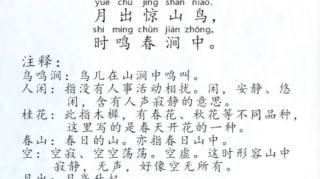 yuè chū jīng shān niǎo,
月出惊山鸟，
shí míng chūn jiàn zhōng。
时鸣春涧中。
注释：
鸟鸣涧：鸟儿在山涧中鸣叫。
人闲：指没有人事活动相扰。闲，安静、悠
闲，含有人声寂静的意思。
桂花：此指木樨，有春花、秋花等不同品种，
这里写的是春天开花的一种。
春山：春日的山。亦指春日山中。
空：空寂、空空荡荡。空虚。这时形容山中
寂静，无声，好像空无所有。